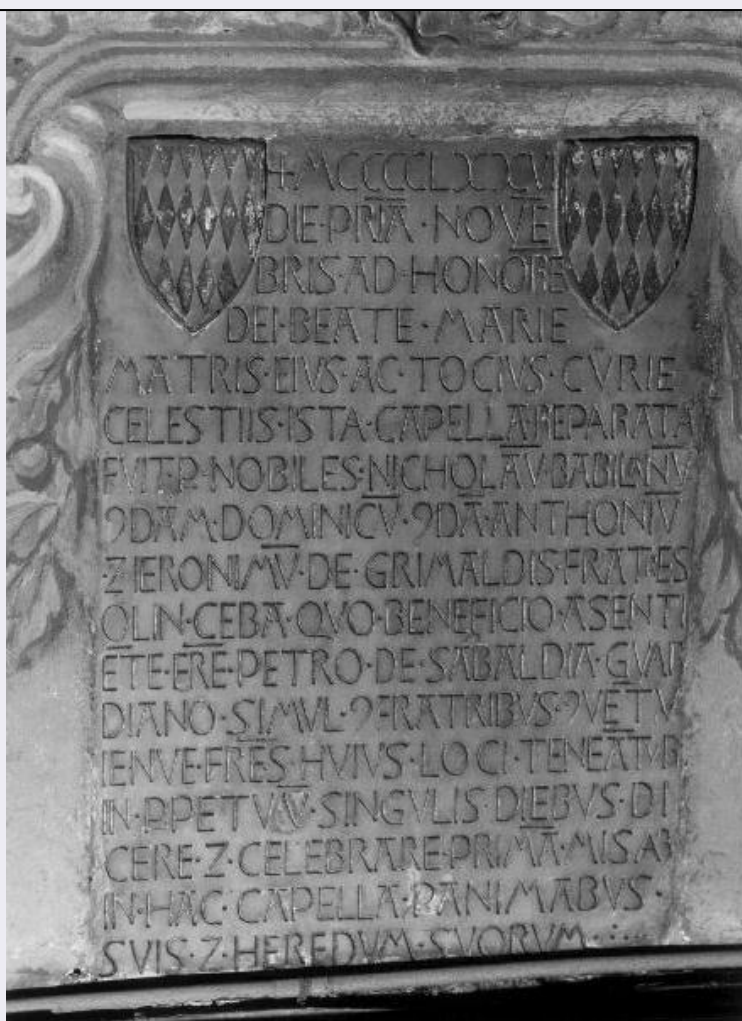 + MCCCCLXXXV
DIE·PRIA·NOVE
BRIS·AD·HONORE
DEI·BEATE·MARIE
MATRIS·EIVS·AC·TOCIVS·CVRIE
CELESTIIS·ISTA·CAPELLA·REPARATA
FVIT·P·NOBILES·NICHOLAV·BABILANV
9DAM·DOMINICV·9DA·ANTHONIV
Z·IERONIMV·DE·GRIMALDIS·FRATRES
OLIN·CEBA·QVO·BENEFICIO·ASENTI
ETE·FRE·PETRO·DE·SABALDIA·GVAR
DIANO·SIMVL·9FRATRIBVS·9VETV
IENVE·FRES·HVIVS·LOCI·TENEATVR
IN·PPETVV·SINGVLIS·DIEBVS·DI
CERE·Z·CELEBRARE·PRIMA·MISA
IN·HAC·CAPELLA·P·ANIMABVS·
SVIS·Z·HEREDVM·SVORVM·